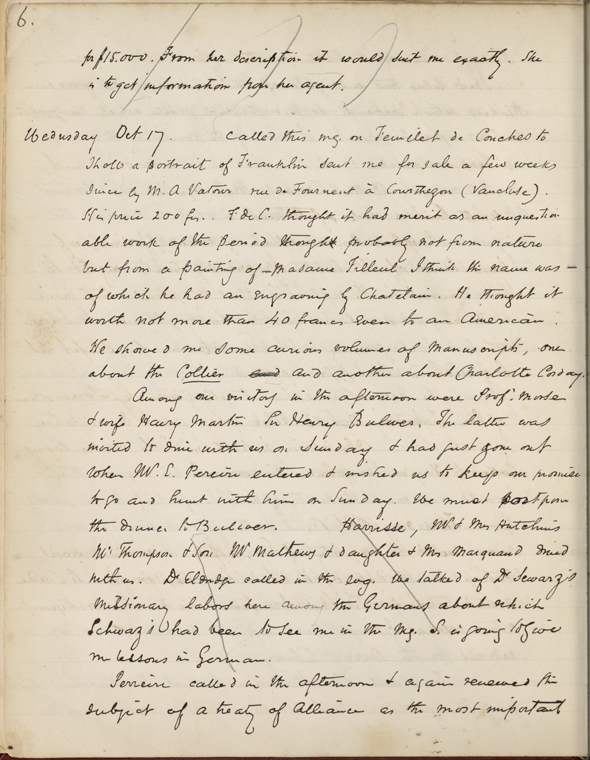 6.
for £15.000. From her description it would suit me exactly. She
is to get information from her agent.
Wednsday Oct 17. Called this mg. on Feuillet de Conches to
show a portrait of Franklin sent me for sale a few weeks
since by M. A Vatour rue de Fourneut à Courthegon (Vaucluse).
His price 200 frs. . F. de C. thought it had merit as an unquestion
able work of the period thought probably not from nature
but from a painting of - Madame Filleul I think the name was -
of which he had an engraving by Chatelain. He thought it
worth not more than 40 francs even to an American.
He showed me some curious volumes of Manuscripts, one
about the Collier and another about Charlotte Corday.
Among our visitors in the afternoon were Prof. Morse
& wife Henry Martin Sir Henry Bulwer. The latter was
invited to dine with us on Sunday & had just gone out
when Mr. E. Pereire entered & wished us to keep our promise
to go and hunt with him on Sunday. We must postpone
the dinner to Bulwer. Harrisse, Mr & Mrs Hutchins
Mr Thompson & Son Mr Mathews & daughter & Mrs Marquand dined
with us. Dr Eldridge called in the evg. We talked of Dr Swarz's
missionary labors here among the Germans about which
Schwarz's had been to see me in the mg. S. is going to give
me lessons in German.
Perreire called in the afternoon & again renewed the
subject of a treaty of Alliance as the most important